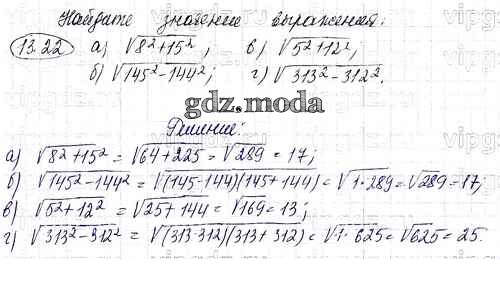 Найдите значение выражения:
13.22 а) √8²+15² ; в) √5²+12² ;
б) √145²-144² ; г) √313²-312² .
gdz.moda
Решение:
а) √8²+15² = √64+225 = √289 = 17;
б) √145²-144² = √(145-144)(145+144) = √1·289 = √289 = 17;
в) √5²+12² = √25+144 = √169 = 13;
г) √313²-312² = √(313-312)(313+312) = √1·625 = √625 = 25.